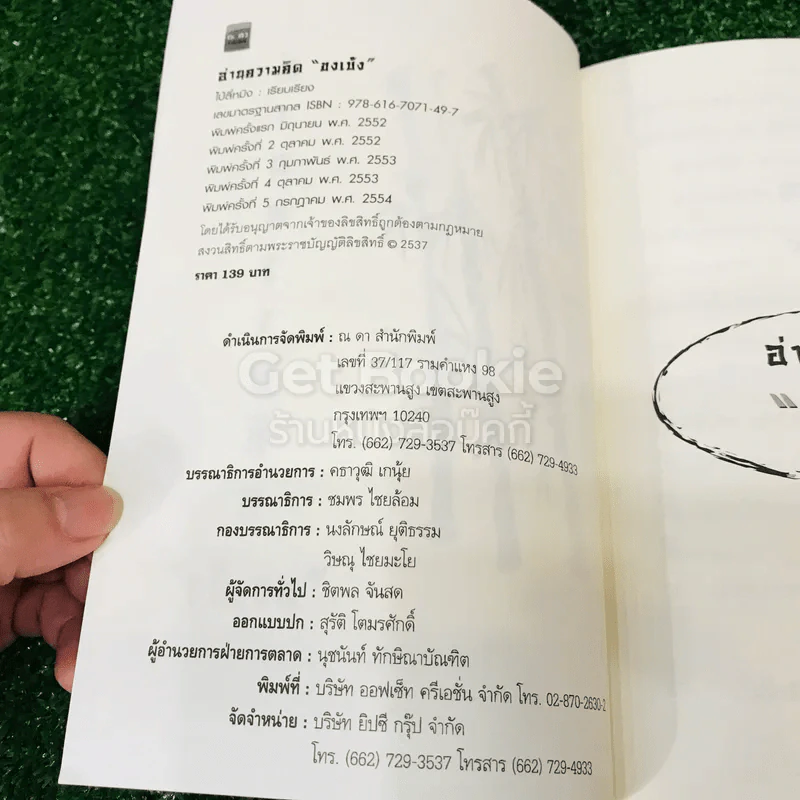 ณ ดา
อ่านความคิด "ขงเบ้ง"
ไป๋ลี่หมิง : เรียบเรียง
เลขมาตรฐานสากล ISBN : 978-616-7071-49-7
พิมพ์ครั้งแรก มิถุนายน พ.ศ. 2552
พิมพ์ครั้งที่ 2 ตุลาคม พ.ศ. 2552
พิมพ์ครั้งที่ 3 กุมภาพันธ์ พ.ศ. 2553
พิมพ์ครั้งที่ 4 ตุลาคม พ.ศ. 2553
พิมพ์ครั้งที่ 5 กรกฎาคม พ.ศ. 2554
โดยได้รับอนุญาตจากเจ้าของลิขสิทธิ์ถูกต้องตามกฎหมาย
สงวนสิทธิ์ตามพระราชบัญญัติลิขสิทธิ์ © 2537
ราคา 139 บาท
ดำเนินการจัดพิมพ์ : ณ ดา สำนักพิมพ์
เลขที่ 37/117 รามคำแหง 98
แขวงสะพานสูง เขตสะพานสูง
กรุงเทพฯ 10240
โทร. (662) 729-3537 โทรสาร (662) 729-4933
บรรณาธิการอำนวยการ : คธาวุฒิ เกนุ้ย
บรรณาธิการ : ชมพร ไชยล้อม
กองบรรณาธิการ : นงลักษณ์ ยุติธรรม
วิษณุ ไชยมะโย
ผู้จัดการทั่วไป : ชิตพล จันสด
ออกแบบปก : สุรัติ โตมรศักดิ์
ผู้อำนวยการฝ่ายการตลาด : นุชนันท์ ทักษิณาบัณฑิต
พิมพ์ที่ : บริษัท ออฟเซ็ท ครีเอชั่น จำกัด โทร. 02-870-2630-2
จัดจำหน่าย : บริษัท ยิปซี กรุ๊ป จำกัด
โทร. (662) 729-3537 โทรสาร (662) 729-4933
Get Bookie
ร้านหนังสือบุ๊คกี้
อ่า